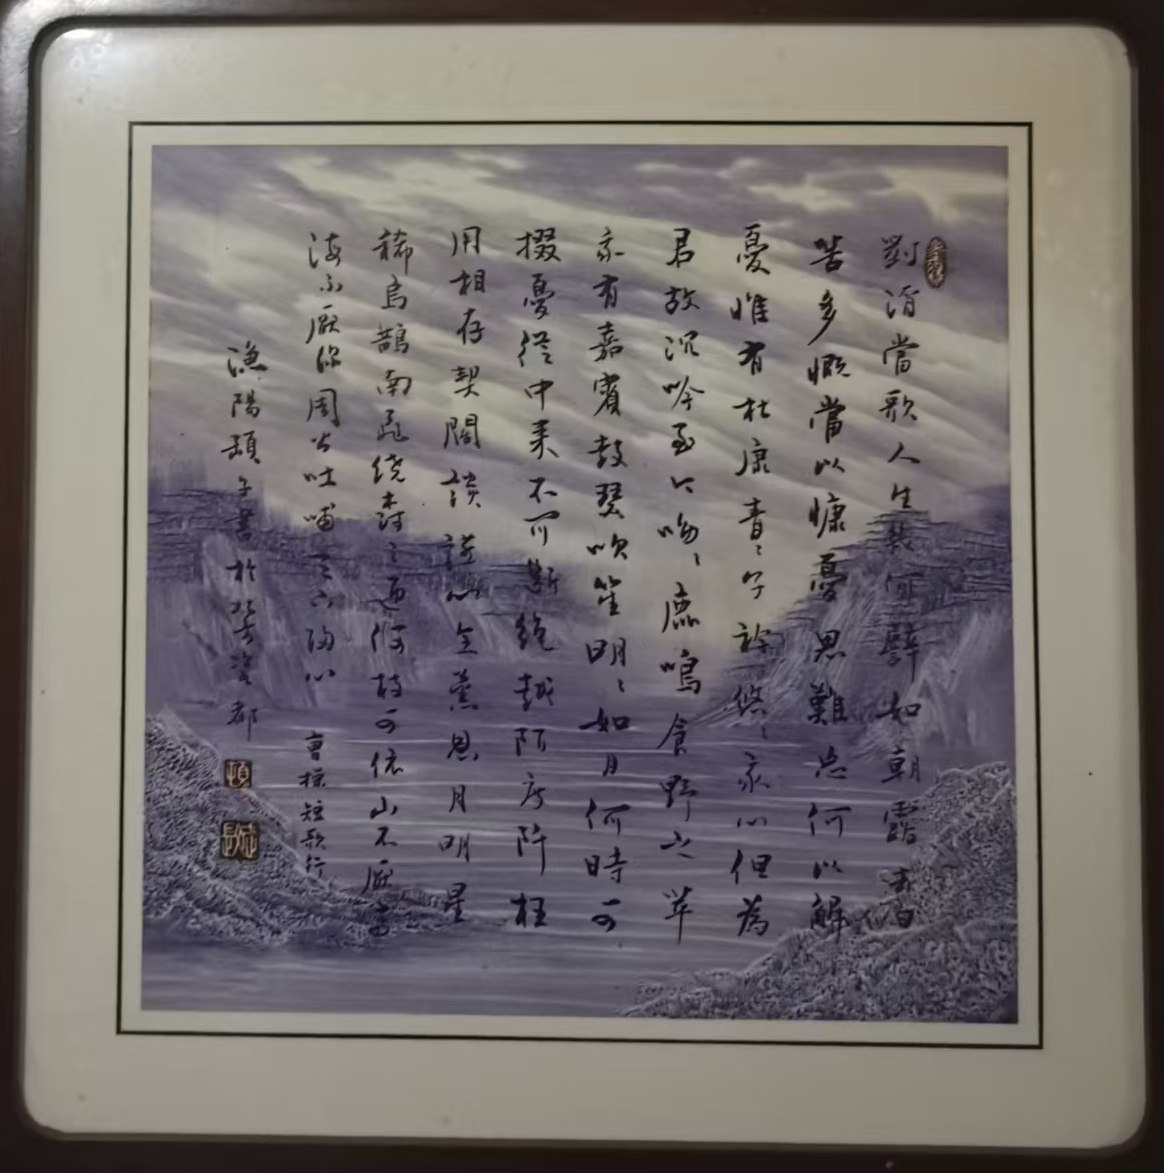 對酒當歌人生幾何譬如朝露去日
苦多慨當以慷憂思難忘何以解
憂惟有杜康青〻子衿悠〻我心但為
君故沉吟至今呦〻鹿鳴食野之苹
我有嘉賓鼓瑟吹笙明〻如月何時可
掇憂從中來不可斷絕越陌度阡枉
用相存契闊談讌心念舊恩月明星
稀烏鵲南飛繞樹三匝何枝可依山不厭高
海不厭深周公吐哺天下歸心 曹操短歌行
漁陽頑子書於瓷都